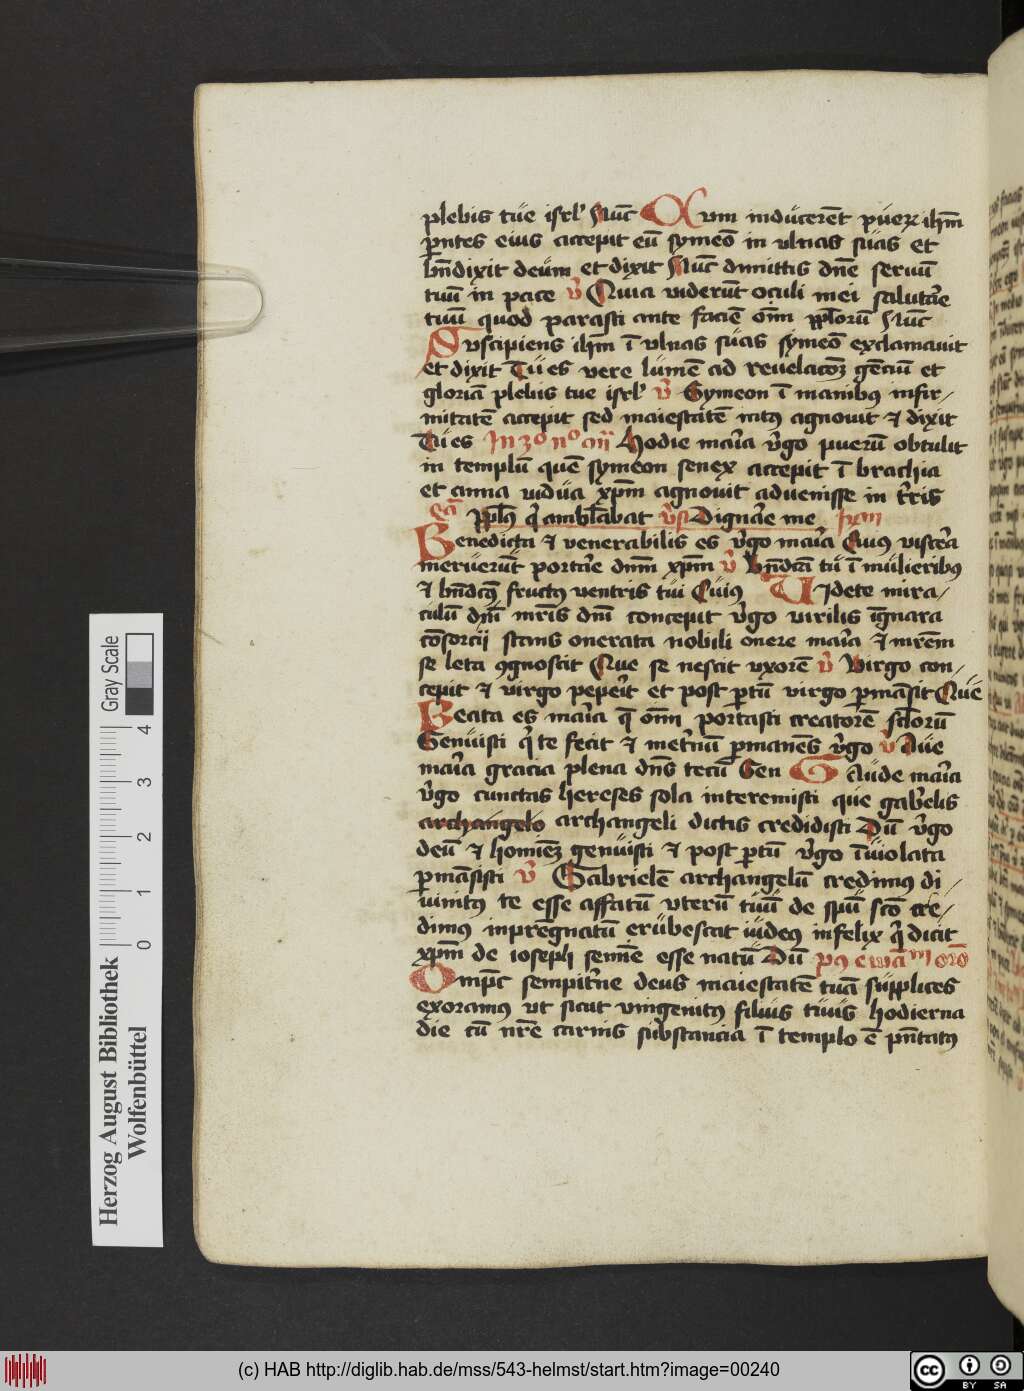 plebis tue isrl' Nūc Cum inducerēt puerū ihm̄
pn̄tes eius accepit eū symeō in ulnas suas et
bn̄dixit deum et dixit Nūc dimittis dn̄e seruū
tuū in pace v̄ Quia viderūt oculi mei salutāe
tuū quod parasti ante faciē om̄ pplorū Nūc
Suscipiens ihm̄ ī ulnas suas symeō exclamauit
et dixit Tu es vere lumē ad reuelacōꝫ gēciū et
gloriā plebis tue isrl' v̄ Symeon ī manibꝰ infir/
mitatē accepit sed maiestatē intꝰ agnouit ⁊ dixit
Tu es In 3º nº Hodie mar̄ia v̄go puerū obtulit
in templū quē symeon senex accepit ī brachia
et anna vidua xp̄m agnouit aduenisse in t̄ris
Pplꝰ q̄ amblabat v̄s Dignāe me
Benedicta ⁊ venerabilis es v̄go mar̄ia Cuiꝰ viscēa
meruerūt portāe dn̄m xp̄m v̄ Bn̄dcā tu ī mulieribꝰ
⁊ bn̄dcꝰ fructꝰ ventris tui Cuiꝰ Videte mira/
culū dn̄i mr̄is dn̄i concepit v̄go virilis īgnara
cōsorcii stans onerata nobili onere mar̄ia ⁊ mr̄em
se leta ꝯgnoscit Que se nescit vxorē v̄ Virgo con/
cepit ⁊ virgo pepeīt et post ptū virgo pmāsit Que
Beata es mar̄ia q̄ om̄ portasti creatorē sclorū
Genuisti q̄ te fecit ⁊ met̄nū pmanes v̄go v̄ Aue
mar̄ia gracia plena dn̄s tecū Gen Gaude mar̄ia
v̄go cunctas hereses sola interemisti que gab̄elis
archangelo archangeli dictis credidisti Dū v̄go
deū ⁊ homīeꝫ genuisti ⁊ post ptū v̄go īuiolata
pmāsisti v̄ Gabrielē archangelū credimꝰ di/
uinitꝰ te esse affatū uterū tuū de spū scō cre/
dimꝰ inpregnatū erubescat iudeꝰ infelix q̄ dicit
xp̄m de ioseph semīe esse natū Dū
Omp̄c sempit̄ne deus maiestatē tuā supplices
exoramꝰ ut sicut vnigenitꝰ filius tuus hodierna
die cū nr̄e carnis substancia ī templo ē pn̄tatꝰ
Gray Scale
4 3 2 1 0
Herzog August Bibliothek
Wolfenbüttel
(c) HAB http://diglib.hab.de/mss/543-helmst/start.htm?image=00240
cc BY SA